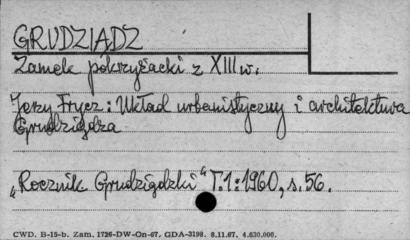 GRUDZIADZ
Zamek pokrzyżacki z XIII w.
Jerzy Frycz: Układ urbanistyczny i architektura
Grudziądza
„Rocznik Grudziądzki" T.1:1960, s. 56.
CWD. B-15-b. Zam. 1726-DW-On-67. GDA-3198. 8.11.67. 4.630.000.